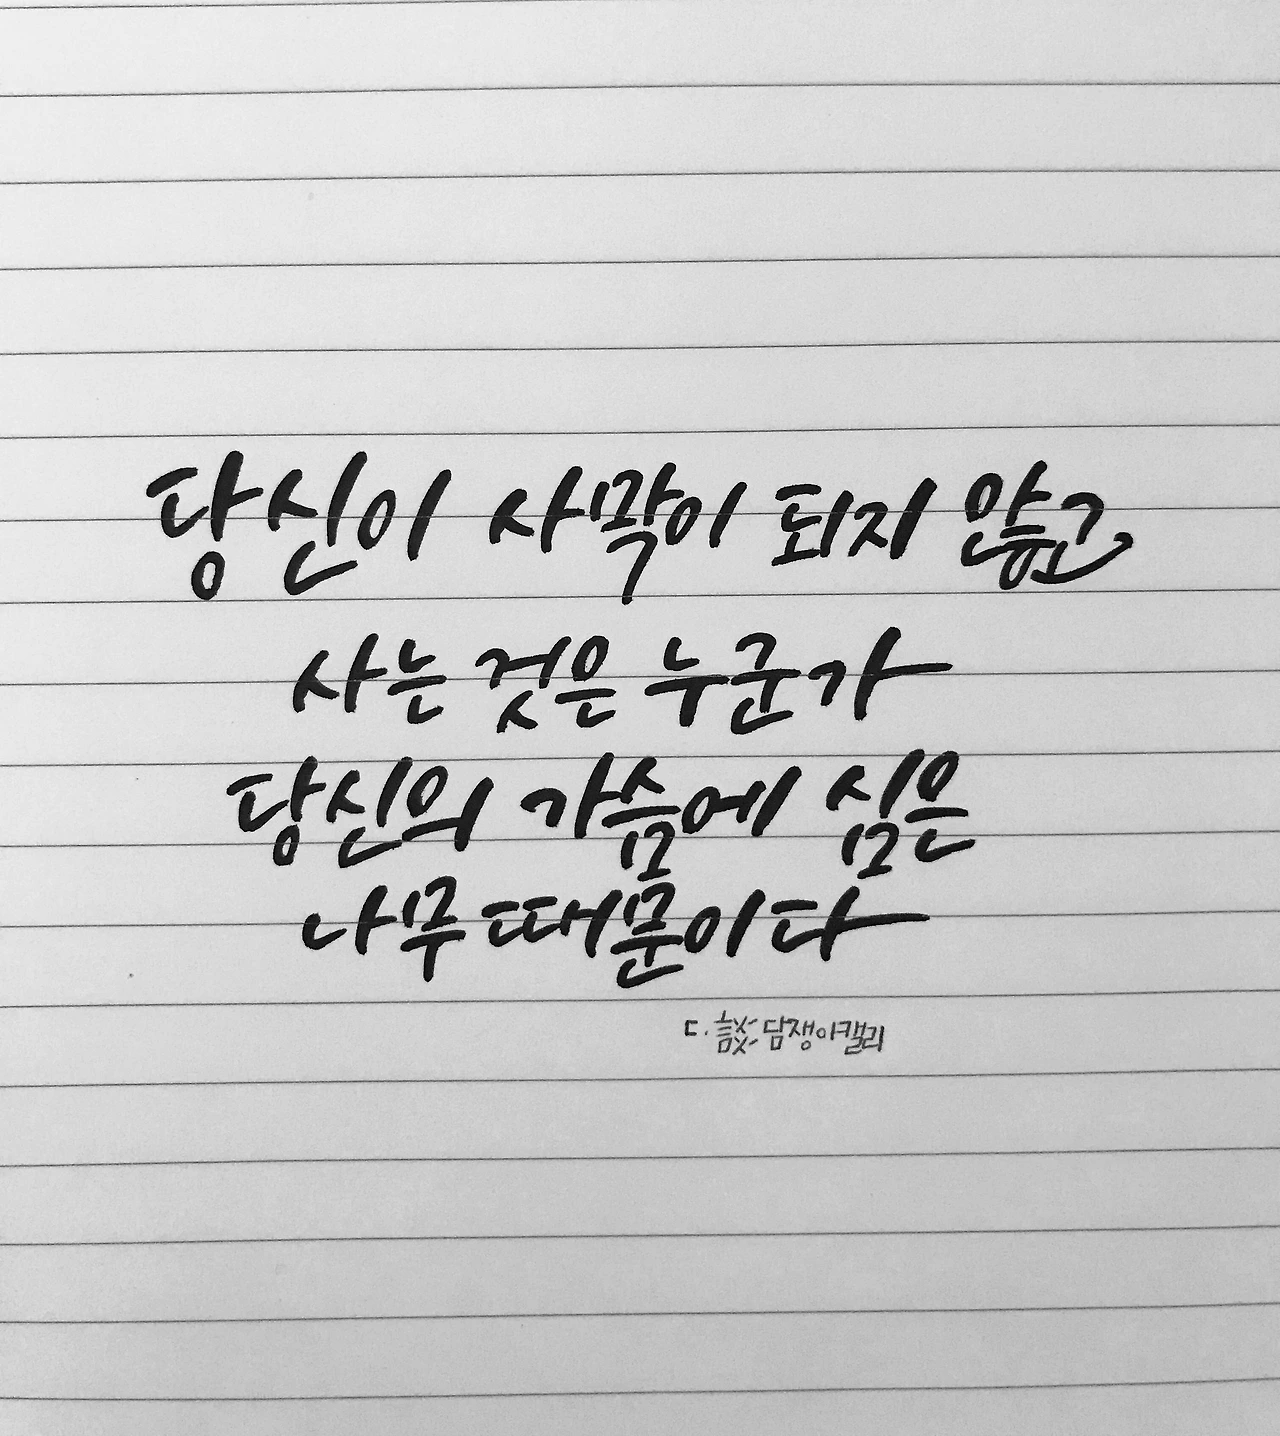 당신이 사막이 되지 않고
사는 것은 누군가
당신의 가슴에 심은
나무 때문이다
ㄷ.談 담쟁이캘리